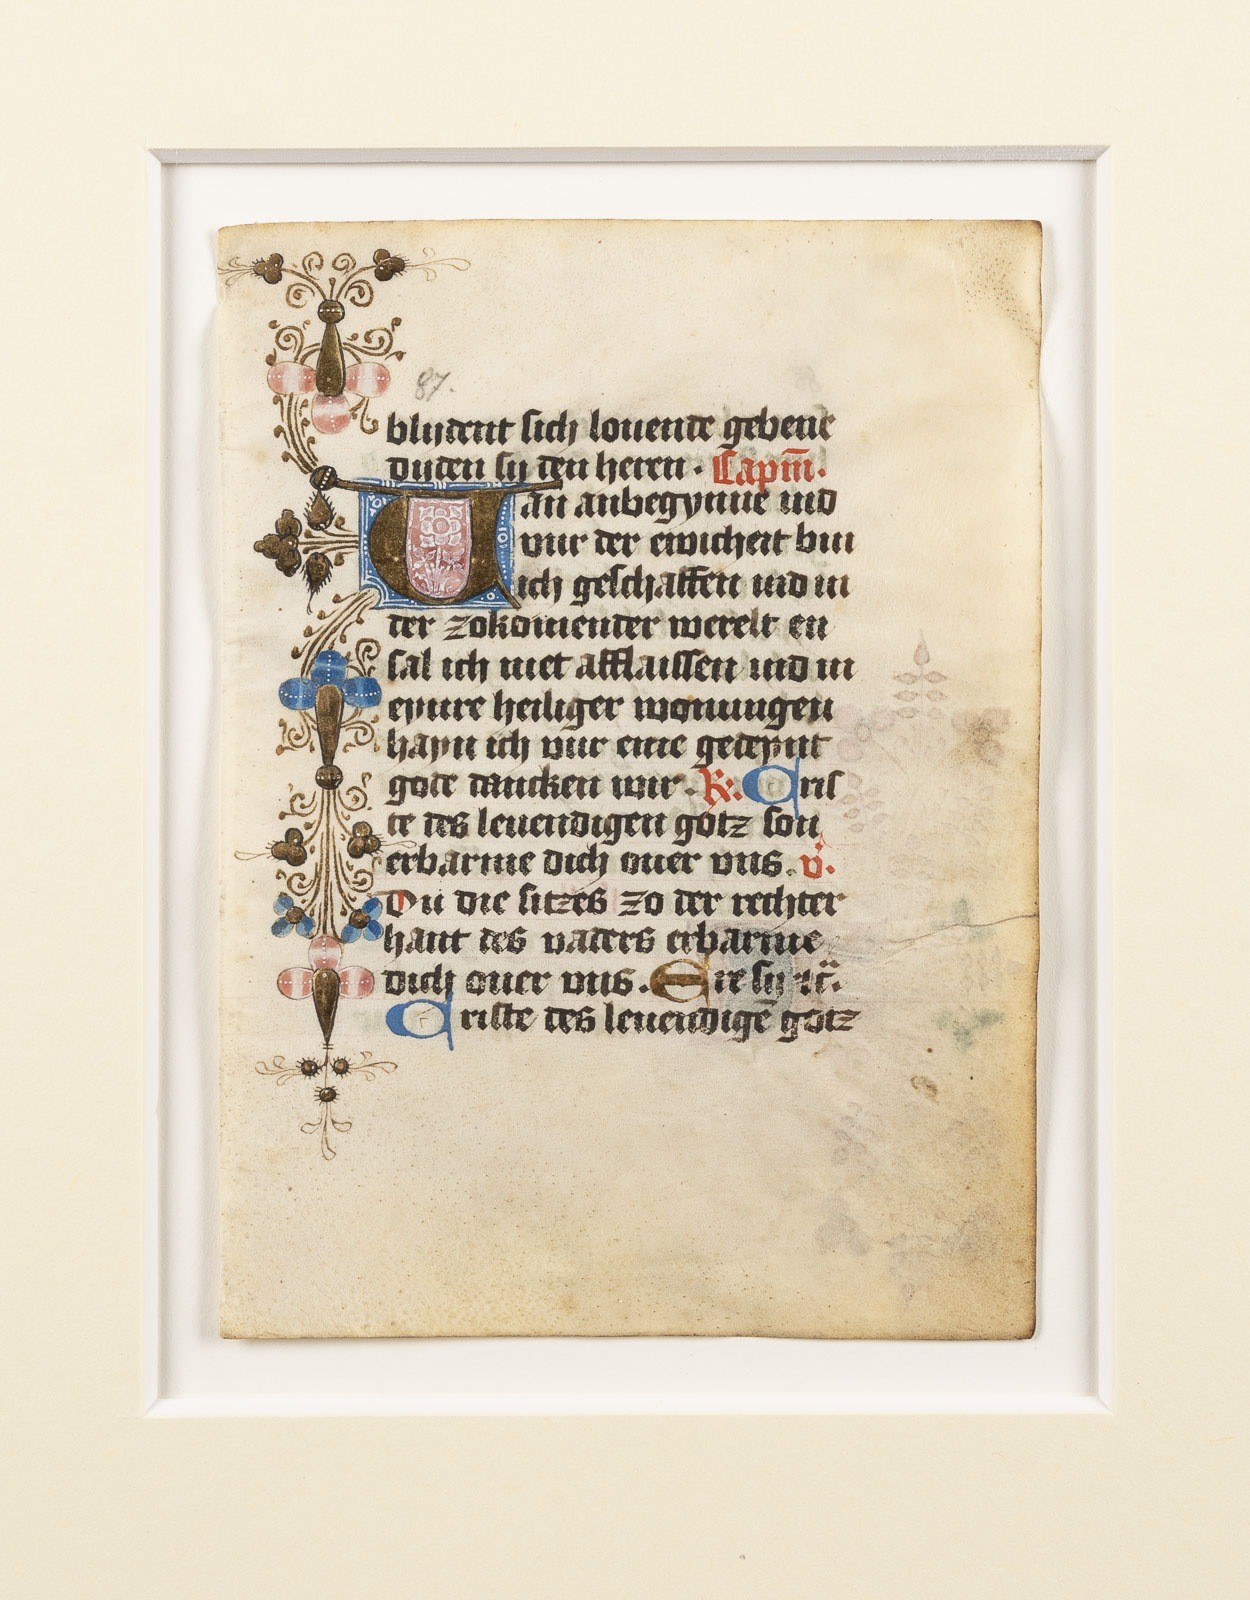 87.
blydent sich louende gebene
dyden sy den heren. Capm̄.
Van anbegynne ind
vur der ewicheit bin
ich geschaffen ind in
der zokomender werelt en
sal ich niet afflaissen ind in
eynre heiliger wonungen
hayn ich vur eme gedeynt
gode dancken wir. R. Cris
te des leuendigen gotz son
erbarme dich ouer vns. v.
Du die sitzes zo der rechter
hant des vaders erbarme
dich ouer vns. Ere sy ⁊c̄.
Criste des leuendigē gotz